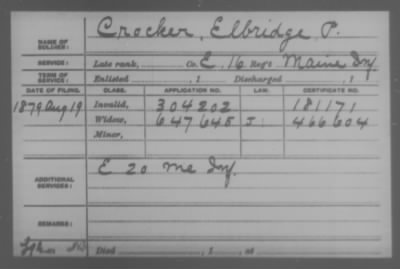 NAME OF SOLDIER: Crocker, Elbridge P.
SERVICE: Late rank, Co. E, 16 Reg't Maine Inf.
TERM OF SERVICE: Enlisted , 1 Discharged , 1
DATE OF FILING. CLASS. APPLICATION NO. LAW. CERTIFICATE NO.
1879 Aug 19 Invalid, 304202 181171
Widow, 647645 J 466604
Minor,
ADDITIONAL SERVICES: E 20 Me Inf.
REMARKS:
Died , 1 , at